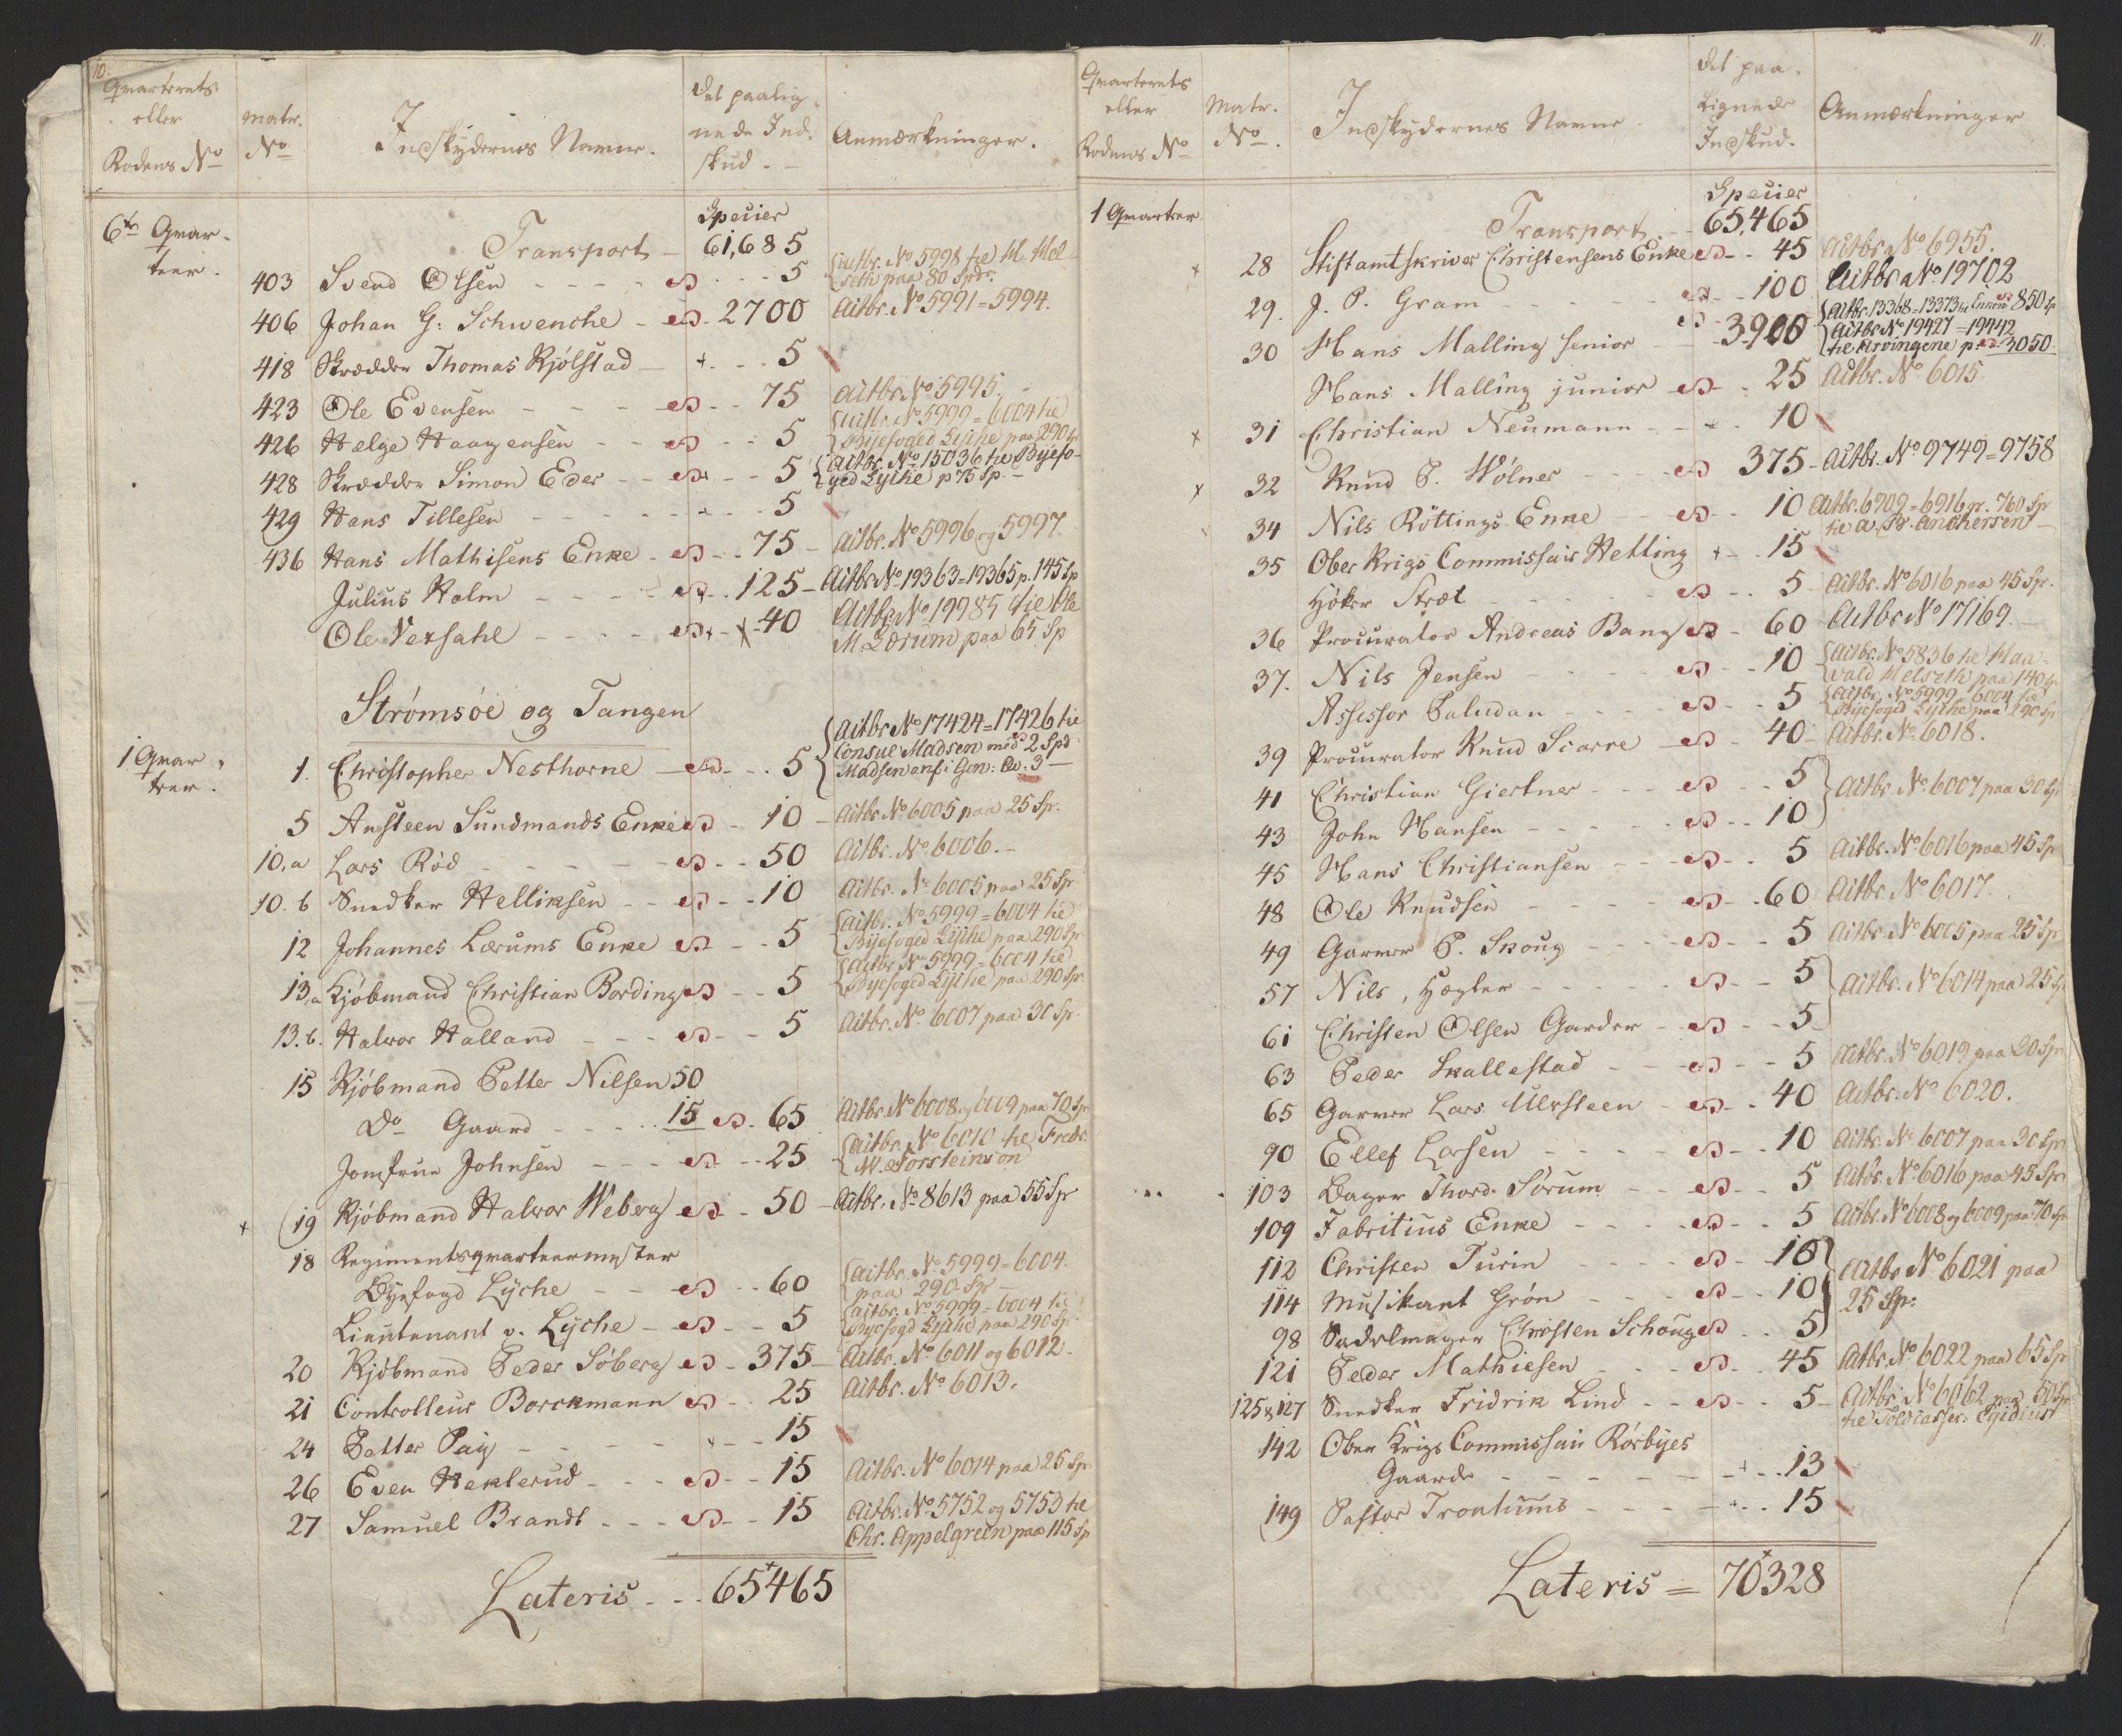 10.
Qvarterets eller Rodens No
Matr. No
Indskydernes Navne.
Det paalignede Indskud.
Anmærkninger.
6te Qvarteer.
Specier
Transport - 61,685
403 Svend Olsen - 5 Actbr. No 5998 til
paa 80 Spdr.
406 Johan G: Schwencke - 2700 Actbr. No 5991=5994.
418 Skrædder Thomas Kjölstad - 5
423 Ole Evensen - 75 Actbr. No 5995.
426 Helge Haagensen - 5 Actbr. No 5999=6004 til
Byefoged Lyche paa 290 Sp
428 Skrædder Simon Eder - 5 Actbr. No 15036 til Byefo-
ged Lyche p 75 Sp.
429 Hans Tillesen - 5
436 Hans Mathisens Enke - 75 Actbr. No 5996 og 5997.
Julius Holm - 125 - Actbr No 19363=19365 p. 145 Sp
Ole Vexsahl - 40 Actbr. No 19785 til Ole
M. Lærum paa 65 Sp
Strømsöe og Tangen
1 Qvarteer.
1. Christopher Nesthorne - 5 Actbr No 17424=17426 til
Consul Madsen med 2 Spd
Madsen anf: i Gen:
5 Ansteen Sundmands Enke - 10 - Actbr No 6005 paa 25 Sp.
10.a Lars Röd - 50 Actbr. No 6006.-
10.b Snedker Helliksen - 10 Actbr. No 6005 paa 25 Sp
12 Johannes Lærums Enke - 5 Actbr. No 5999=6004 til
Byefoged Lyche paa 290 Sp.
13.a Kjöbmand Christian Bording - 5 Actbr No 5999=6004 til
Byefoged Lyche paa 290 Sp.
13.b. Halvor Halland - 5 Actbr. No 6007 paa 30 Sp.
15 Kjöbmand Petter Nilsen 50
Do Gaard - 15 - 65 Actbr. No 6008 og 6009 paa 70 Sp
Jomfrue Johnsen - 25 Actbr. No 6010 til Fredr.
W. Thorsteinson
19 Kjöbmand Halvor Weberg - 50 - Actbr. No 8613 paa 55 Sp
18 Regimentsqvarteermester
Byefogd Lyche - 60 Actbr. No 5999=6004.
paa 290 Sp
Lieutenant v. Lyche - 5 Actbr. No 5999=6004 til
Byefogd Lyche paa 290 Sp.
20 Kjöbmand Peder Söberg - 375 - Actbr. No 6011 og 6012.
21 Controlleur Borckmann - 25 Actbr. No 6013.
24 Petter Paij - 15
26 Even Heklerud - 15 Actbr. No 6014 paa 25 Sp.
27 Samuel Brandt - 15 Actbr. No 5752 og 5753 til
Chr. Appelgreen paa 115 Sp
Lateris - 65465
11.
Qvarterets eller Rodens No
Matr. No.
Indskydernes Navne
Det paalignede Indskud.
Anmærkninger
1 Qvarteer
Specier
Transport. 65,465
28 Stiftamtskriver Christensens Enke - 45 Actbr. No 6955.
29. J. P. Gram - 100 Actbr No 19702
30 Hans Malling senior - 3900 Actbr. 13368=13373 til Enken 850 Sp
Actbr No 19427=19442
til Arvingene p. 3050
Hans Malling junior - 25 Actbr. No 6015
31 Christian Neumann - 10
32 Knud P. Wölner - 375 - Actbr. No 9749=9758
34 Nils Röttings Enke - 10 Actbr. 6909=6916 pr. 760 Sp
til Anchersen
35 Ober Krigs Commissair Hetting - 15
Höker Stræt - 5 Actbr. No 6016 paa 45 Sp.
36 Procurator Andreas Bang - 60 Actbr No 17169.
37. Nils Jensen - 10 Actbr. No 5836 til Haa-
vald Helseth paa 140 Sp
Assessor Paludan - 5 Actbr. No 5999=6004 til
Byefoged Lyche paa 290 Sp
39 Procurator Knud Scarre - 40 Actbr. No 6018.
41 Christian Giertner - 5 Actbr. No 6007 paa 30 Sp
43 John Hansen - 10
45 Hans Christiansen - 5 Actbr. No 6016 paa 45 Sp
48 Ole Knudsen - 60 Actbr No 6017.
49 Garver P. Skoug - 5 Actbr No 6005 paa 25 Sp
57 Nils, Hegler - 5 Actbr. No 6014 paa 25 Sp
61 Christen Olsen Garder - 5
63 Peder Skallestad - 5 Actbr. No 6019 paa 20 Sp
65 Garver Lars Ulvsteen - 40 Actbr. No 6020.
90 Ellef Larsen - 10 Actbr. No 6007 paa 30 Sp
103 Bager Thord. Sörum - 5 Actbr. No 6016 paa 45 Sp
109 Fabritius Enke - 5 Actbr. No 6008 og 6009 paa 70 Sp
112 Christen Turin - 10 Actbr No 6021 paa
114 Musikant Grön - 10 25 Sp:
98 Sadelmager Christen Schoug - 5
121 Peder Mathiesen - 45 Actbr. No 6022 paa 65 Sp
125 & 127 Snedker Fridrik Lind - 5 - Actbr. No 6062 paa 50 Sp
til Toldcasser: Egidius
142 Ober Krigs Commissair Rörbyes
Gaarde - 13
149 Pastor Tronhuus - 15
Lateris = 70328